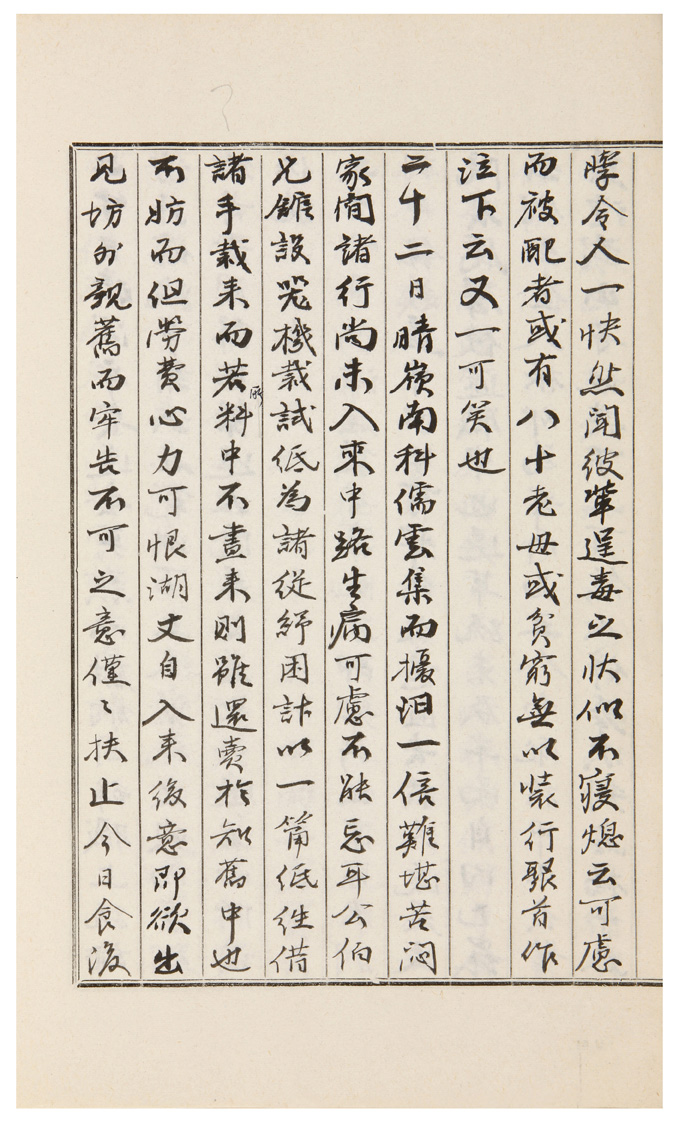 擧令人一快然聞彼輩逞毒之狀似不寢熄云可慮
而被配者或有八十老母或貧窮無以裝行聚首作
泣下云又一可笑也
二十二日晴嶺南科儒雲集而擾汨一倍難堪苦悶
家間諸行尚未入來中路生病可慮不能忘耳公伯
兄雖設機栽試低為諸從紓困計以一篇低往借
諸手栽來而若料中不盡來則雖還賣於知舊中也
不妨而但勞費心力可恨湖丈自入來後意即欲出
見坊外親舊而牢告不可之意僅々扶止今日食後